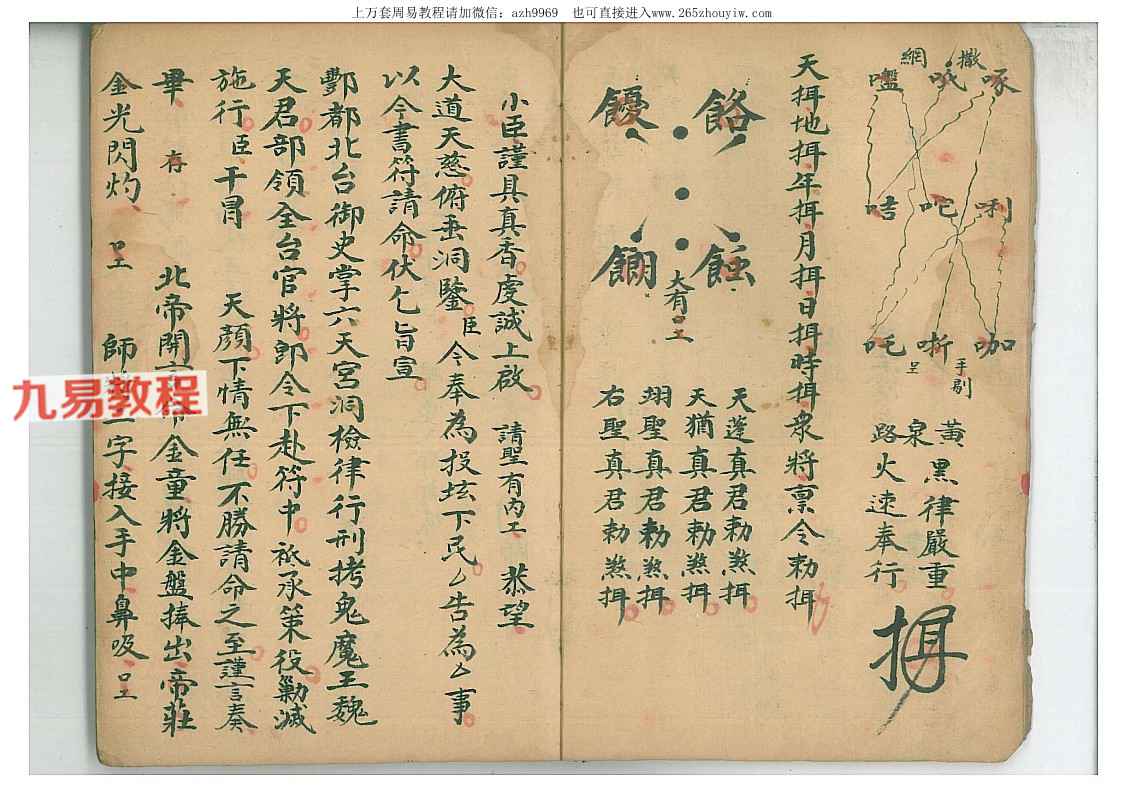 上万套周易教程请加微信：azh9969　也可直接进入www.265zhouyiw.com
撒
網
啄 吺 𠸄
唎 吒 咭
咖 哳 吒
手剔
呈
黃泉路
黑律嚴重
火速奉行
揖
天揖地揖年揖月揖日揖時揖衆將禀令勑揖
餎 餓
蝕
大有口工
天蓬真君勑煞揖
天猶真君勑煞揖
翊聖真君勑煞揖
右聖真君勑煞揖
小臣謹具真香虔誠上啟 請聖有內工 恭望
大道天慈俯垂洞鑒臣今奉為投坛下民厶告為厶事
以今書符請命伏乞旨宣
酆都北台御史掌六天宮洞檢律行刑拷鬼魔王魏
天君部領全台官將郎令下赴符中祗承策役勦滅
施行臣干冒 天顏下情無任不勝請命之至謹言奏
畢 存 北帝開 金童將金盤捧出帝莊
金光閃灼 口工 師 字接入手中鼻吸口工
九易教程